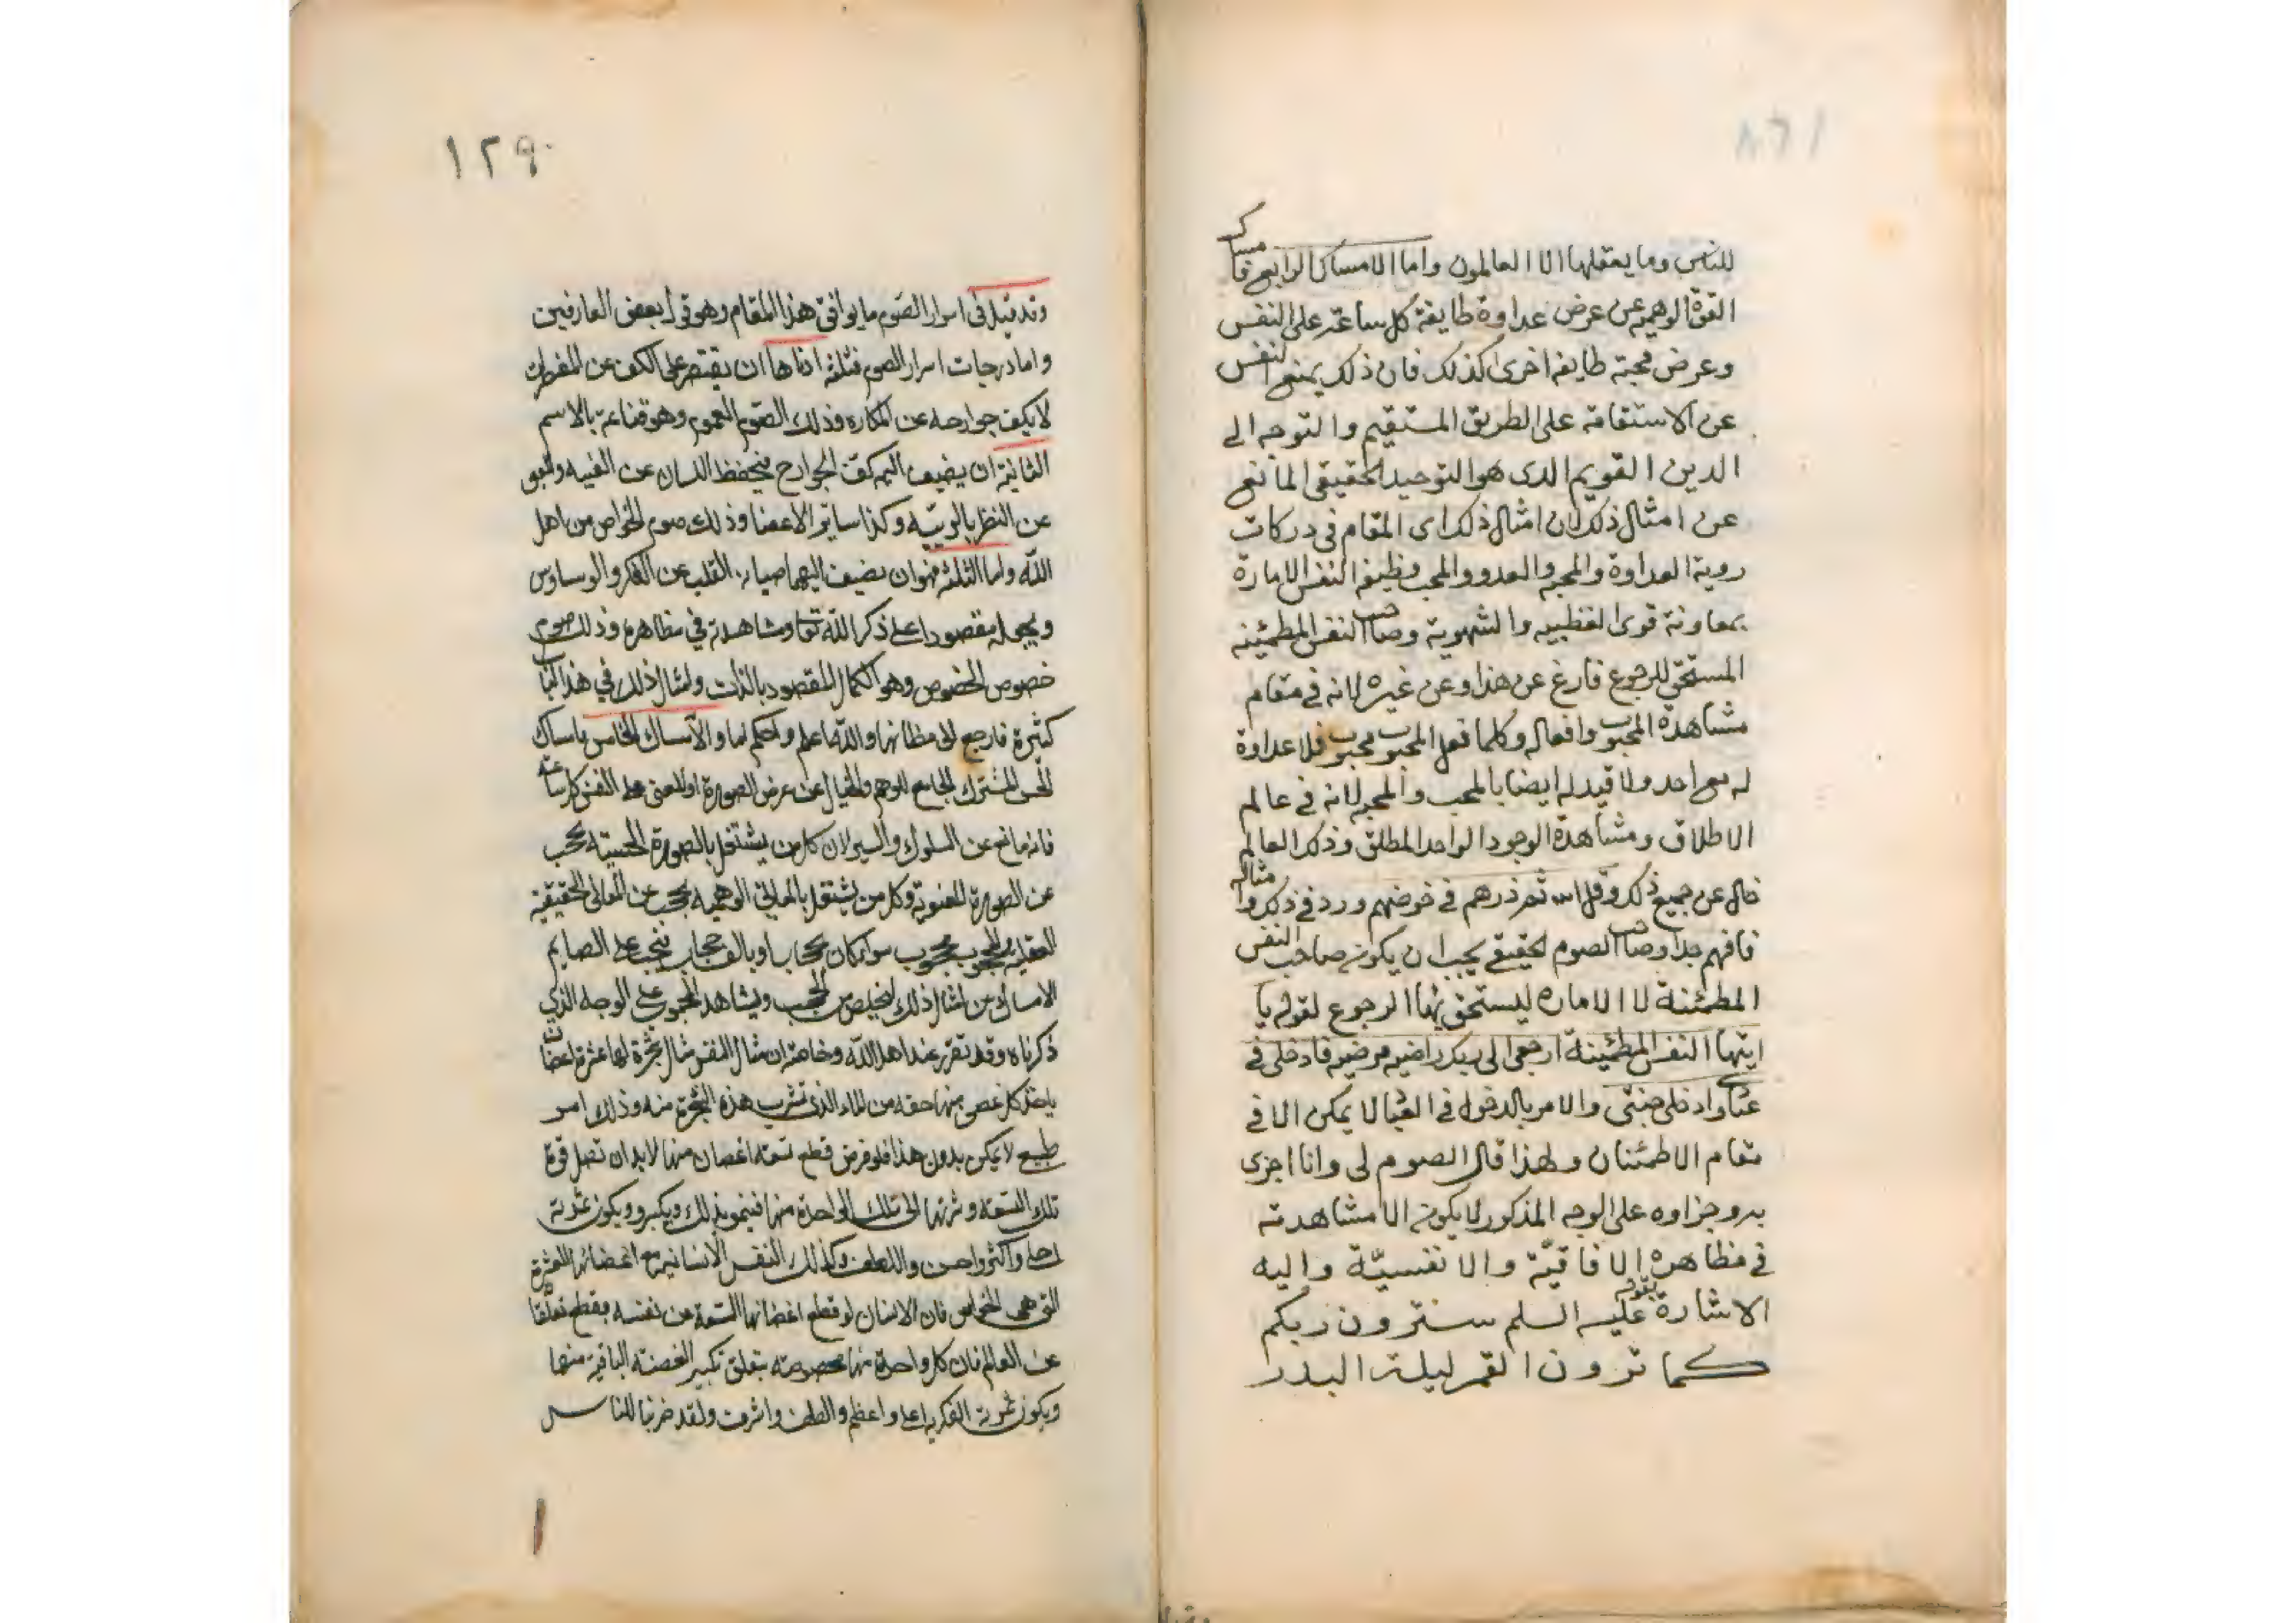 ١٢٨
للناس وما يعقلها الا العالمون واما الامساك الرابع فامساك
القوة الوهمية عن عرض عداوة طايفة كل ساعة على النفس
وعرض محبة طايفة اخرى كذلك فان ذلك يمنع النفس
عن الاستقامة على الطريق المستقيم والتوجه الى
الدين القويم الدى هو التوحيد الحقيقى المانع
عن امثال ذلك لان امثال ذلك اى المقام فى دركات
روية العداوة والمحبة والعدو والمحب وظيفة النفس الامارة
بمعاونة قوى الغظبيه والشهوية وصاحب النفس المطمئنه
المستحق للرجوع فارغ عن هذا وعن غيره لانه فى مقام
مشاهدة المحبوب وافعاله وكلما فعل المحبوب محبوب فلا عداوة
له مع احد ولا قيد له ايضا بالمحب والمحبة لانه فى عالم
الاطلاق ومشاهدة الوجود الواحد المطلق وذلك العالم
خال عن جميع ذلك وقل الله ثم ذرهم فى خوضهم ورد فى ذلك وامثاله
فافهم جدا وصاحب الصوم الحقيقى يجب ان يكون صاحب النفس
المطمئنة لا الاماره ليستحق بها الرجوع لقوله يا
ايتها النفس المطمئينة ارجعى الى ربك راضيه مرضيه فادخلى فى
عبادى وادخلى جنتى والامر بالدخول فى العباد لا يمكن الا فى
مقام الاطمئنان ولهذا قال الصوم لى وانا اجزى
به وجزاوه على الوجه المذكور لا يكون الا مشاهدته
فى مظاهره الافاقيّة والانفسيّة واليه
الاشارة بقوله عليه السلم سترون ربكم
كما ترون القمر ليلة البدر
١٢٩
وقد قيل فى اسرار الصوم ما يوافق هذا المقام وهو قول بعض العارفين
واما درجات اسرار الصوم فثلثه ادناها ان يقتصر على الكف عن المفطرات
لا يكف جوارحه عن المكاره وذلك الصوم العموم وهو قناعة بالاسم
الثانية ان يضيف اليه كف الجوارح فيحفظ اللسان عن الغيبه والعين
عن النظر بالريبه وكذا سائر الاعضا وذلك صوم الخواص من اهل
اللّه واما الثلثه فهو ان يضيف اليهما صيانة القلب عن الفكر والوساوس
ويجعله مقصورا على ذكر اللّه تعا ومشاهدته فى مظاهره وذلك صوم
خصوص الخصوص وهو الكمال المقصود بالذات وامثال ذلك فى هذا الباب
كثيرة فارجع الى مظانها واللّه اعلم واحكم اما والامساك الخامس فامساك
الحس المشترك الجامع للوهم والخيال عن عرض الصورة او المعنى على النفس كل ساعة
فانه مانع عن السلوك والسير لان كل من يشتغل بالصورة الحسية يحجب
عن الصورة المعنوية وكل من يشتغل بالمعانى الوهمية يحجب عن المعانى الحقيقية
العقلية والمحجوب محجوب سوا كان بحجاب او بالف حجاب فيجب على الصايم
الامساك من امثال ذلك ليخلص من الحجب ويشاهد المحبوب على الوجه الذى
ذكرناه وقد تقرر عند اهل اللّه وخاصته ان مثال النفس مثال شجرة لها عشرة اغصان
ياخذ كل غصن منها حقه من الماء الذى تشرب هذه الشجرة منه وذلك امر
طبيع لا يمكن بدون هذا فلو فرض قطع تسعة اغصان منها لا بد ان تصل قوة
تلك التسعة وثمرتها الى تلك الواحدة منها فينمو بذلك ويكبر ويكون ثمرته
احلى واكثر واحسن والطف وكذلك النفس الانسانية مع اغصانها العشرة
التى هى الحواس فان الانسان لو قطع اغصانها التسعة من نفسه بقطع تعلقا
عن العالم فان كل واحدة منها مخصوصة بتعلق تكبير الغصنة الباقية منها
ويكون ثمرته الفكرية اعلى واعظم والطف واشرف ولقد ضربنا للناس